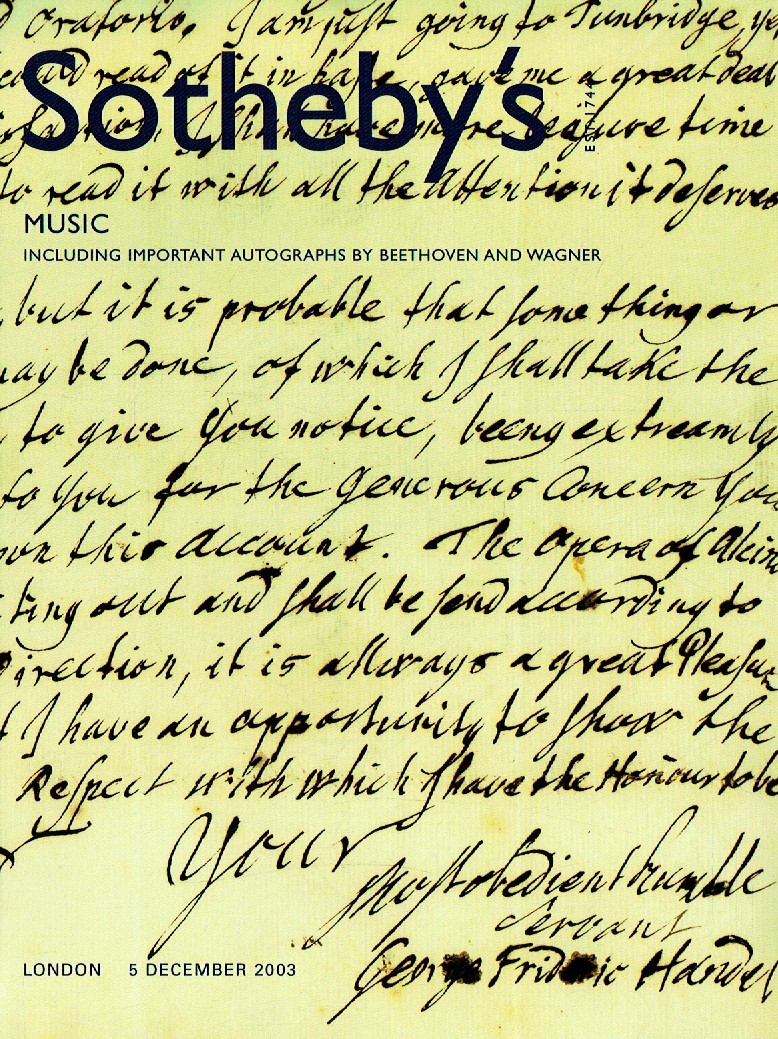 Oratorio. I am just going to Tunbridge, ye
could read of it in haste, gave me a great deal
isfaction. I shall have more leasure time
to read it with all the Attention it deserves
Sotheby's
EST. 1744
MUSIC
INCLUDING IMPORTANT AUTOGRAPHS BY BEETHOVEN AND WAGNER
but it is probable that some thing or
may be done, of which I shall take the
to give You notice, being extreamly
to You for the Generous Concern You
on this account. The Opera of Alcin
ting out and shall be send according to
Direction, it is allways a great Pleasur
I have an opportunity to show the
Respect with which I have the Honour to be
Your
Most obedient humble
Servant
George Frideric Handel
LONDON 5 DECEMBER 2003